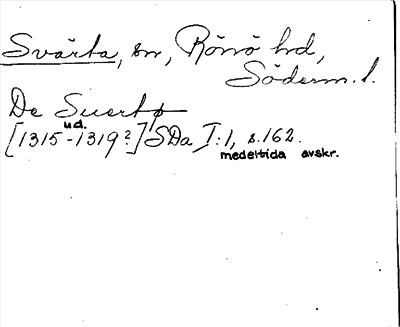 Svärta, sn, Rönö hd,
Söderm. l.
De Suertø
ud.
[1315-1319?] SDa I:1, s.162.
medeltida avskr.